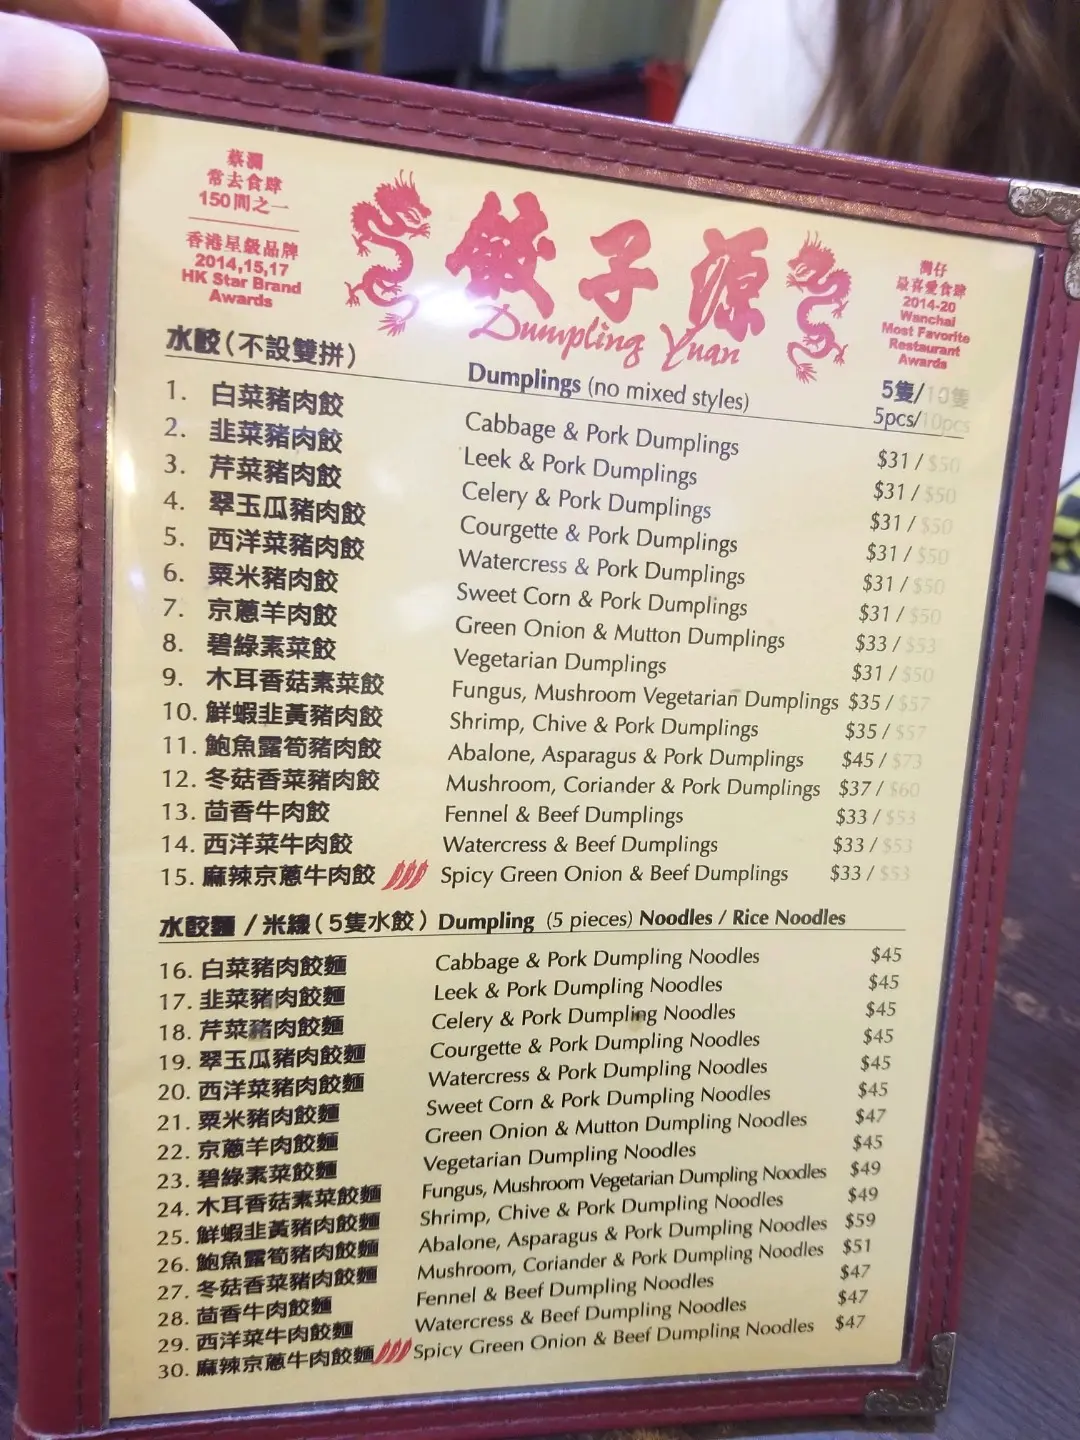 蔡瀾
常去食肆
150間之一
香港星級品牌
2014,15,17
HK Star Brand
Awards
餃子源
Dumpling Yuan
灣仔
最喜愛食肆
2014-20
Wanchai
Most Favorite
Restaurant
Awards
水餃(不設雙拼) Dumplings (no mixed styles) 5隻/10隻
5pcs/10pcs
1. 白菜豬肉餃 Cabbage & Pork Dumplings $31 / $50
2. 韭菜豬肉餃 Leek & Pork Dumplings $31 / $50
3. 芹菜豬肉餃 Celery & Pork Dumplings $31 / $50
4. 翠玉瓜豬肉餃 Courgette & Pork Dumplings $31 / $50
5. 西洋菜豬肉餃 Watercress & Pork Dumplings $31 / $50
6. 粟米豬肉餃 Sweet Corn & Pork Dumplings $31 / $50
7. 京蔥羊肉餃 Green Onion & Mutton Dumplings $33 / $53
8. 碧綠素菜餃 Vegetarian Dumplings $31 / $50
9. 木耳香菇素菜餃 Fungus, Mushroom Vegetarian Dumplings $35 / $57
10. 鮮蝦韭黃豬肉餃 Shrimp, Chive & Pork Dumplings $35 / $57
11. 鮑魚露筍豬肉餃 Abalone, Asparagus & Pork Dumplings $45 / $73
12. 冬菇香菜豬肉餃 Mushroom, Coriander & Pork Dumplings $37 / $60
13. 茴香牛肉餃 Fennel & Beef Dumplings $33 / $53
14. 西洋菜牛肉餃 Watercress & Beef Dumplings $33 / $53
15. 麻辣京蔥牛肉餃 Spicy Green Onion & Beef Dumplings $33 / $53
水餃麵 / 米線(5隻水餃) Dumpling (5 pieces) Noodles / Rice Noodles
16. 白菜豬肉餃麵 Cabbage & Pork Dumpling Noodles $45
17. 韭菜豬肉餃麵 Leek & Pork Dumpling Noodles $45
18. 芹菜豬肉餃麵 Celery & Pork Dumpling Noodles $45
19. 翠玉瓜豬肉餃麵 Courgette & Pork Dumpling Noodles $45
20. 西洋菜豬肉餃麵 Watercress & Pork Dumpling Noodles $45
21. 粟米豬肉餃麵 Sweet Corn & Pork Dumpling Noodles $45
22. 京蔥羊肉餃麵 Green Onion & Mutton Dumpling Noodles $47
23. 碧綠素菜餃麵 Vegetarian Dumpling Noodles $45
24. 木耳香菇素菜餃麵 Fungus, Mushroom Vegetarian Dumpling Noodles $49
25. 鮮蝦韭黃豬肉餃麵 Shrimp, Chive & Pork Dumpling Noodles $49
26. 鮑魚露筍豬肉餃麵 Abalone, Asparagus & Pork Dumpling Noodles $59
27. 冬菇香菜豬肉餃麵 Mushroom, Coriander & Pork Dumpling Noodles $51
28. 茴香牛肉餃麵 Fennel & Beef Dumpling Noodles $47
29. 西洋菜牛肉餃麵 Watercress & Beef Dumpling Noodles $47
30. 麻辣京蔥牛肉餃麵 Spicy Green Onion & Beef Dumpling Noodles $47